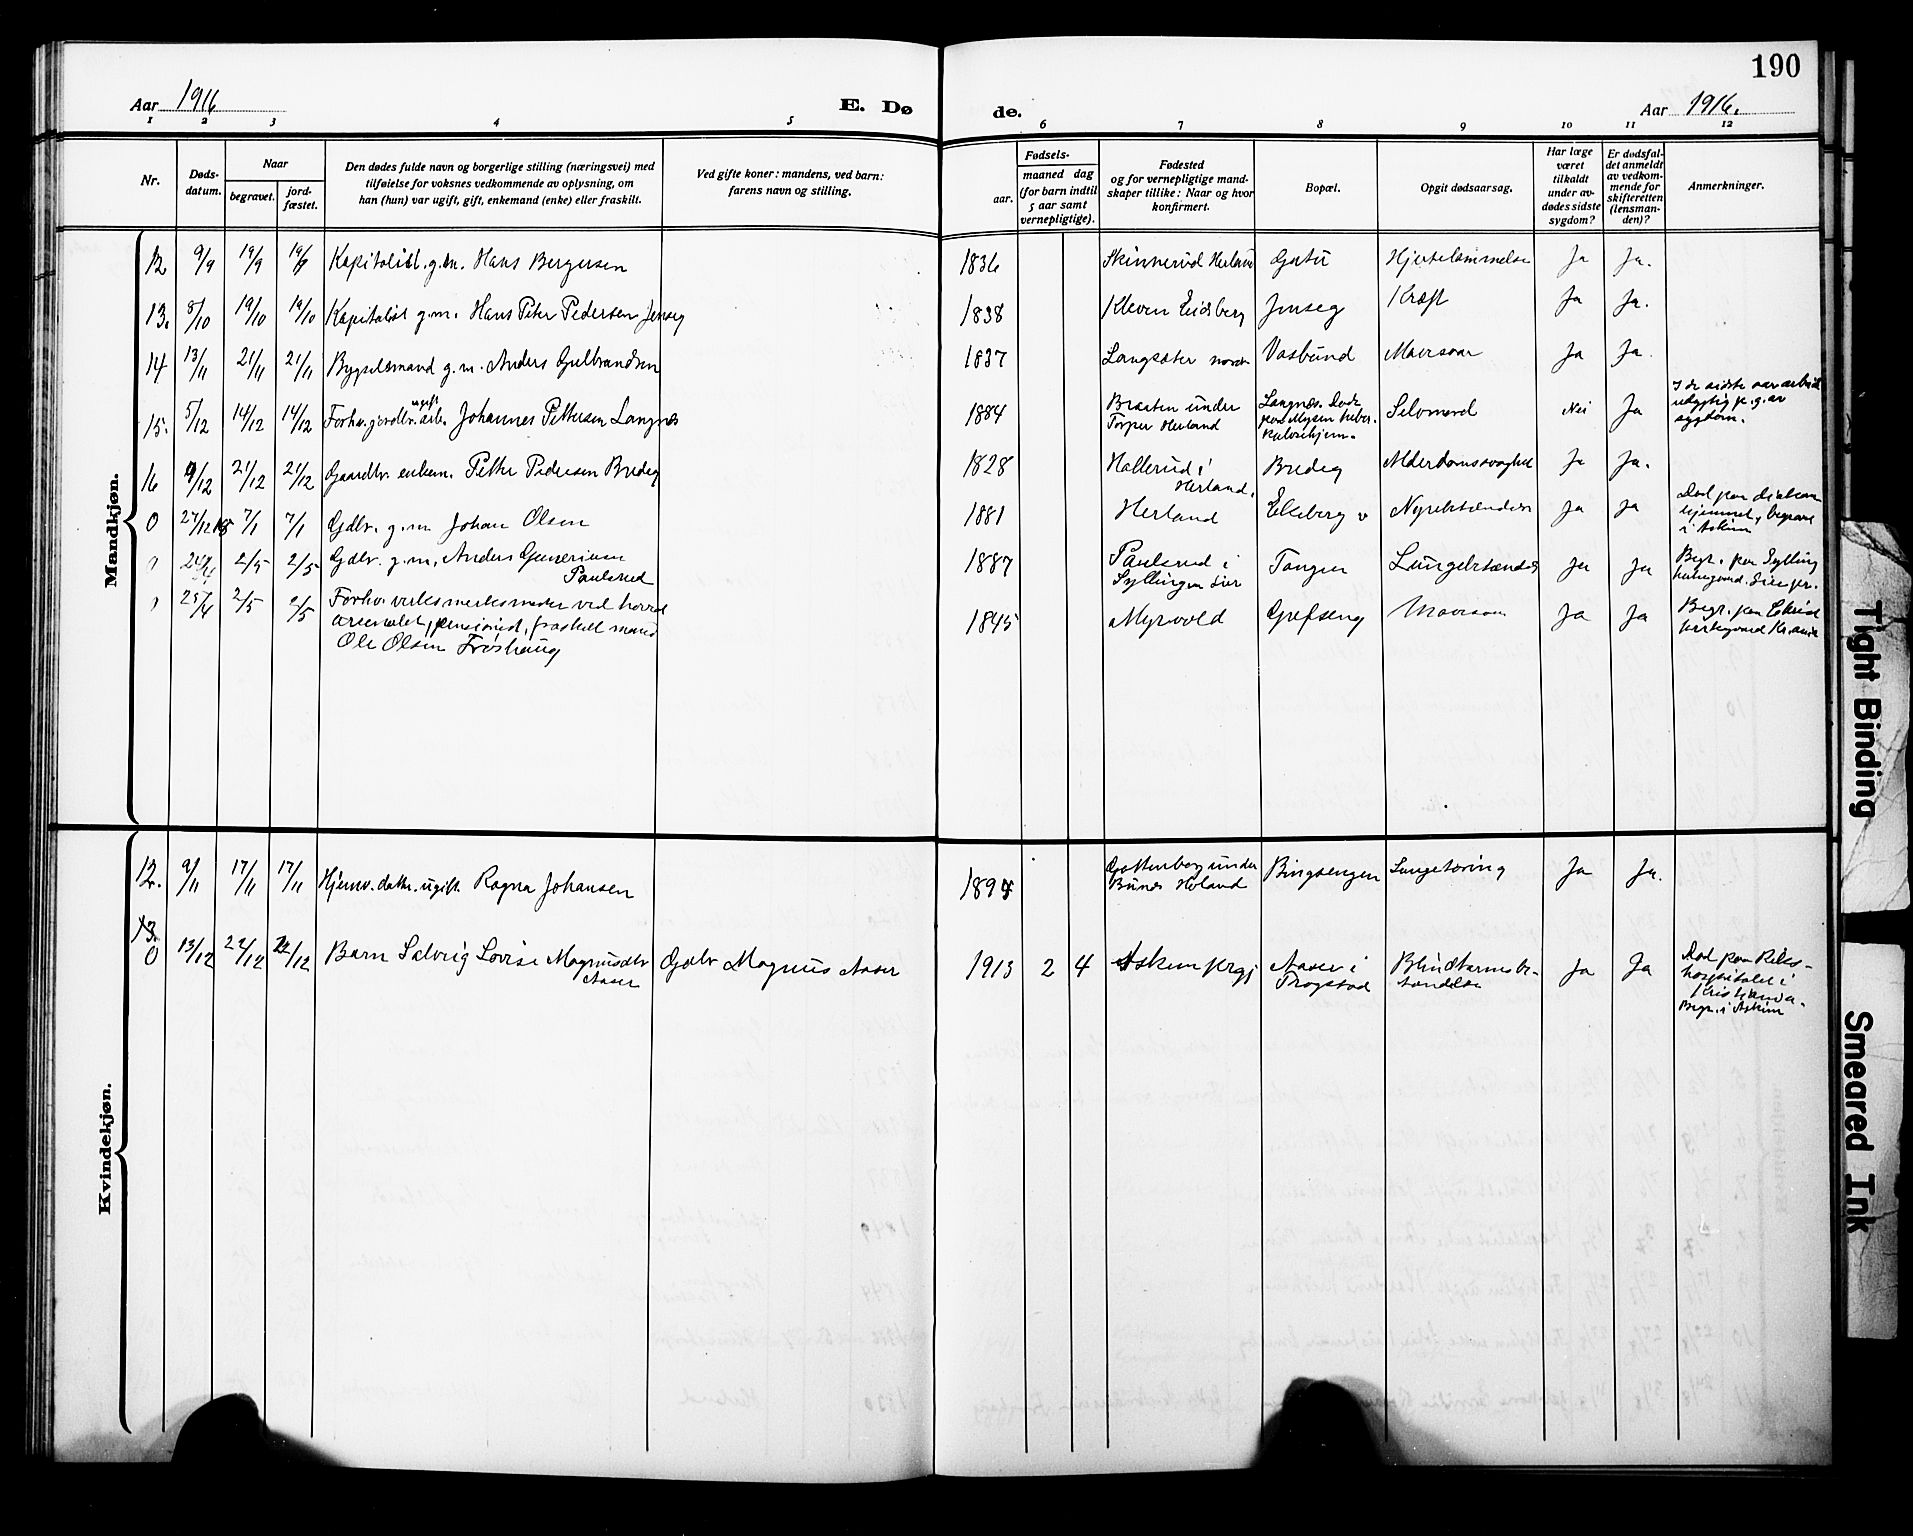 190
Aar 1916
E. Dø
de.
Aar 1916.
1 2 3 4 5 6 7 8 9 10 11 12
Nr.
Døds-
datum.
Naar
begravet.
jord-
fæstet.
Den dødes fulde navn og borgerlige stilling (næringsvei) med
tilføielse for voksnes vedkommende av oplysning, om
han (hun) var ugift, gift, enkemand (enke) eller fraskilt.
Ved gifte koner: mandens, ved barn:
farens navn og stilling.
Fødsels-
aar.
maaned dag
(for barn indtil
5 aar samt
vernepligtige).
Fødested
og for vernepligtige mand-
skaper tillike: Naar og hvor
konfirmert.
Bopæl.
Opgit dødsaarsag.
Har læge
været
tilkaldt
under av-
dødes sidste
sygdom?
Er dødsfal-
det anmeldt
av vedkom-
mende for
skifteretten
(lensman-
den)?
Anmerkninger.
Mandkjøn.
12. 9/9 19/9 19/9 Kapitalist. g.m. Hans Bergersen 1836 Skinnerud Herland Hjertelammelse Ja Ja.
13. 8/10 19/10 19/10 Kapitalist g.m. Hans Peter Pedersen Jenseg 1838 Kleven Eidsberg Jenseg Kræft Ja Ja.
14 13/11 21/11 21/11 Bygselmand g.m. Anders Gulbrandsen 1837 Langsæter Vasbund Ja Ja.
15. 5/12 14/12 14/12 Forhv. gardbr. ugift arb. Johannes Pettersen Langnæs 1884 Braaten under
Torper Herland
Langnæs. Døde
paa Mysen tuber-
kulosehjem.
Selvmord Nei Ja
I de sidste aar arbeids
udygtig p. g. av
sygdom.
16 9/12 21/12 21/12 Gaardbr. enkem. Petter Pedersen Bredeg 1828 Hallerud i
Herland.
Bredeg Alderdomssvaghet Ja Ja.
0 27/12 15 7/1 7/1 Gdbr. g.m. Johan Olsen 1881 Herland Ekeberg v Nyrebetændelse Ja Ja
Død paa diakon
hjemmet, begrave
i Askim
24/4 2/5 2/5 Gdbr. g.m. Anders Guneriusen
Paulsrud
1887 Paulsrud i
Syllingen Lier
Tangen Lungebetændels Ja Ja
Begr. paa Sylling
kirkegaard. Lier pr.
25/4 2/5 2/5 Forhv. verksmester ved hoved
arsenalet, pensionist, fraskilt mand
Ole Olsen Frøshaug
1845 Myrvold Grefseng Ja Ja
Begr. paa
kirkegaard Kr.ania
Kvindekjøn.
12. 9/11 17/11 17/11 Hjemv. datter. ugift. Ragna Johansen 1894 Gottenborg under
Bunes Høland
Bingsengen Lungetæring Ja Ja.
13.
0 13/12 22/12 22/12 Barn Solveig Lovise Magnusdtr
Aaser
Gdbr Magnus Aaser 1913 2 4 Askim prgj Aaser i
Trøgstad
Blindtarmsbe-
tændelse
Ja Ja
Død paa Riks-
hospitalet i
Kristiania.
Begr. i Askim
Tight Binding
Smeared Ink